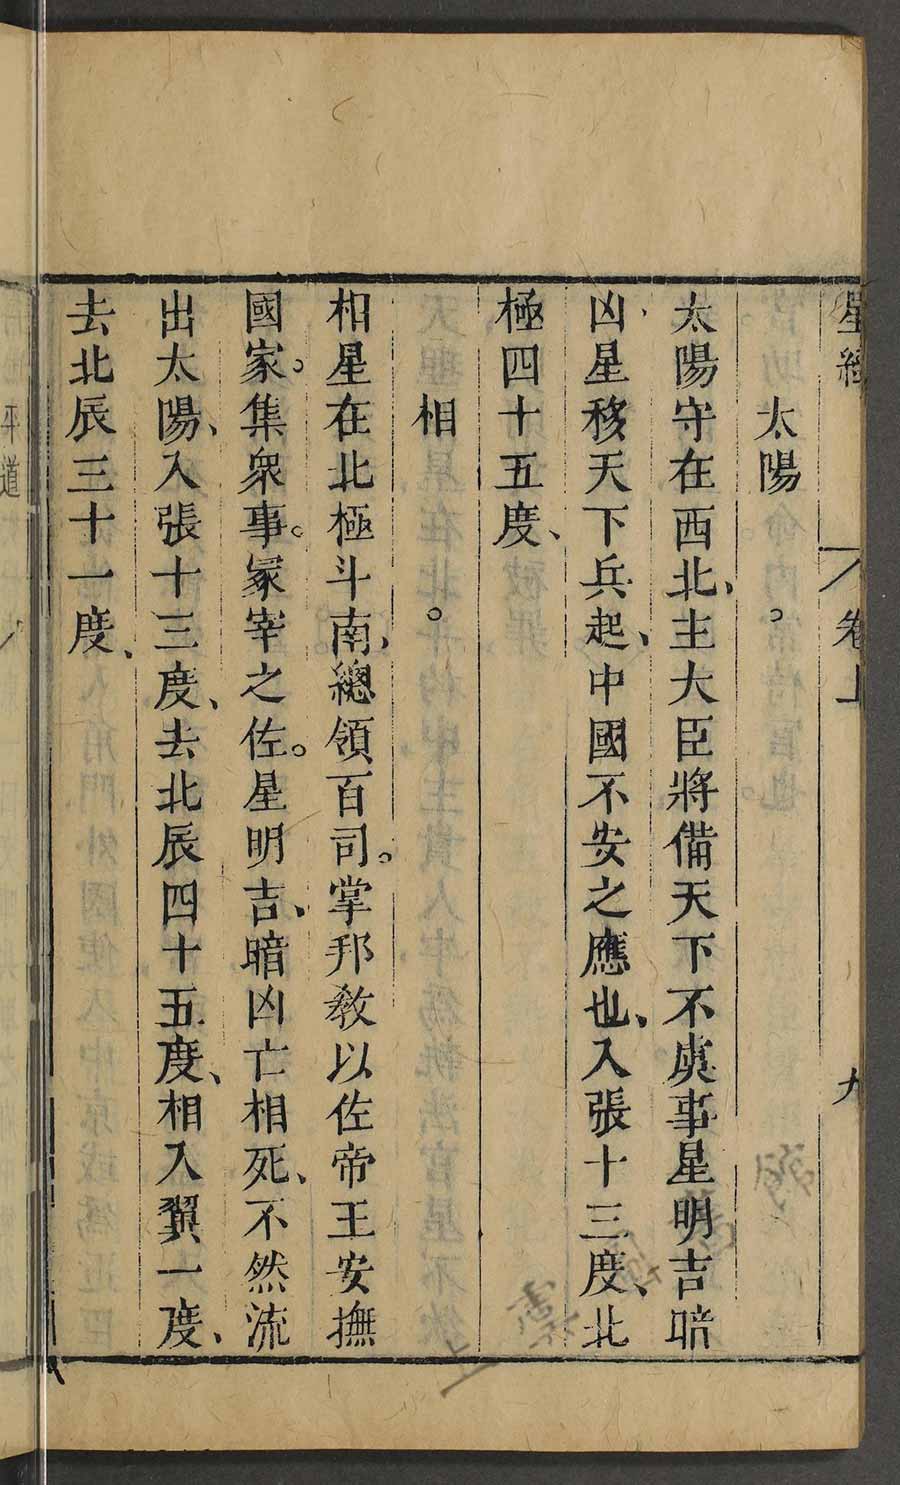 星經 卷上 九
太陽。
太陽守在西北、主大臣將備天下不虞事星明吉暗
凶星移天下兵起、中國不安之應也、入張十三度、北
極四十五度、
相。
相星在北極斗南、總領百司。掌邦教以佐帝王安撫
國家。集衆事。冡宰之佐。星明吉、暗凶亡相死、不然流
出太陽、入張十三度、去北辰四十五度、相入翼一度、
去北辰三十一度、
平道